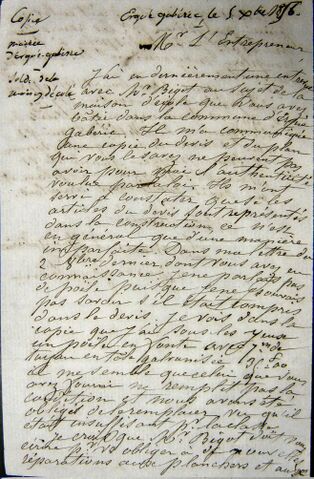 Copie
Ergué-gabéric le 5 Xbre 1856.
mairie
d'ergué-gabéric
Mr. l'Entrepreneur,
Solde de la
maison d'école
J'ai eu dernièrement une entrevue
avec Mr. Bigot au sujet de la
maison d'école que vous avez
bâtie dans la commune d'Ergué
gabéric. Il m'a communiqué
une copie du devis et du plan
que vous le savez ne peuvent pas
avoir pour moi l'authenticité
voulue par la loi. Ils m'ont
servi à constater que si les
articles du devis sont représentés
dans la construction ce n'est
en général que d'une manière
imparfaite. Dans ma lettre du
2 dernier dont vous avez eu
connaissance je ne parlais pas
de poële puisque je ne pouvais
pas savoir s'il était compris
dans le devis. Je vois dans la
copie que j'ai sous les yeux
un poële en fonte avec
tuyau en tôle galvanisée
il me semble que celui que vous
avez fourni ne remplit pas la
condition et nous avons été
obligé de le remplacer vu qu'il
était insuffisant
Je crois que Mr. Bigot doit vous
écrire pr. vous obliger à
réparations aux planchers et aux